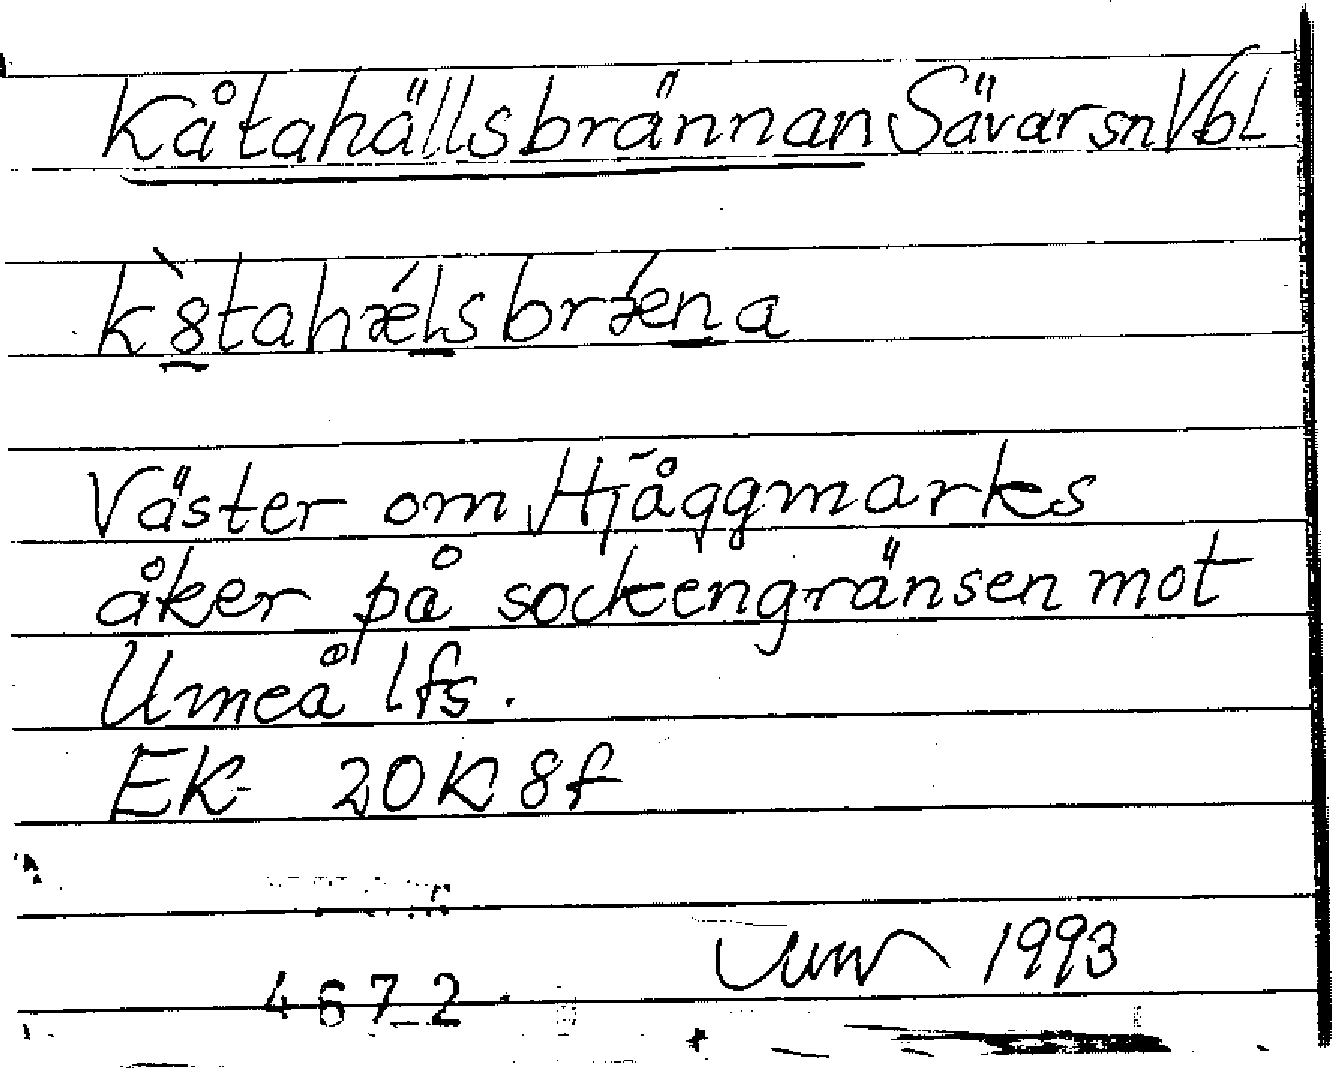 Kåtahällsbrännan Sävar sn Vbl
k8̀tahǽlsbrǽna
Väster om Hjåggmarks
åker på sockengränsen mot
Umeå lfs.
EK 20K 8f
1993
4672